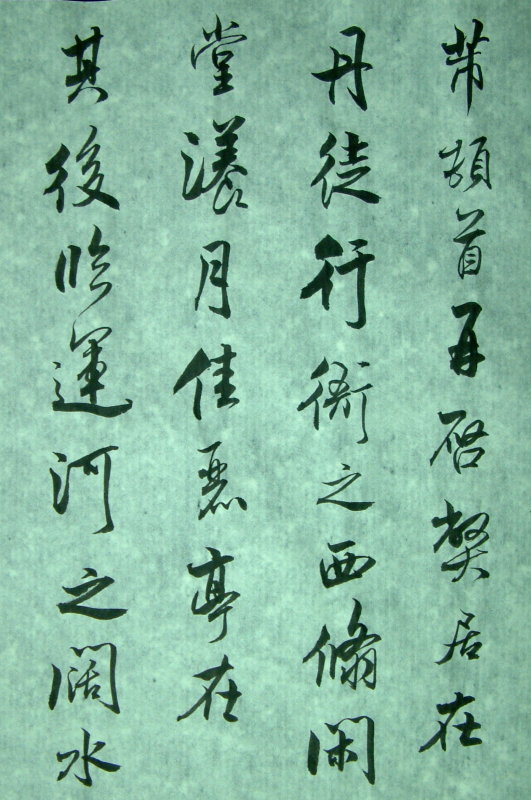 芾頓首再啓弊居在
丹徒行衙之西翛閑
堂漾月佳麗亭在
其後臨運河之闊水